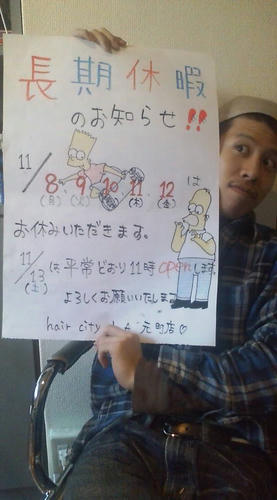 長期休暇
のお知らせ!!
11/8、9、10、11、12は
(月)(火)(木)(金)
お休みいただきます。
11/13は平常どおり11時openします。
(土)
よろしくお願いいたします
hair city 元町店♡